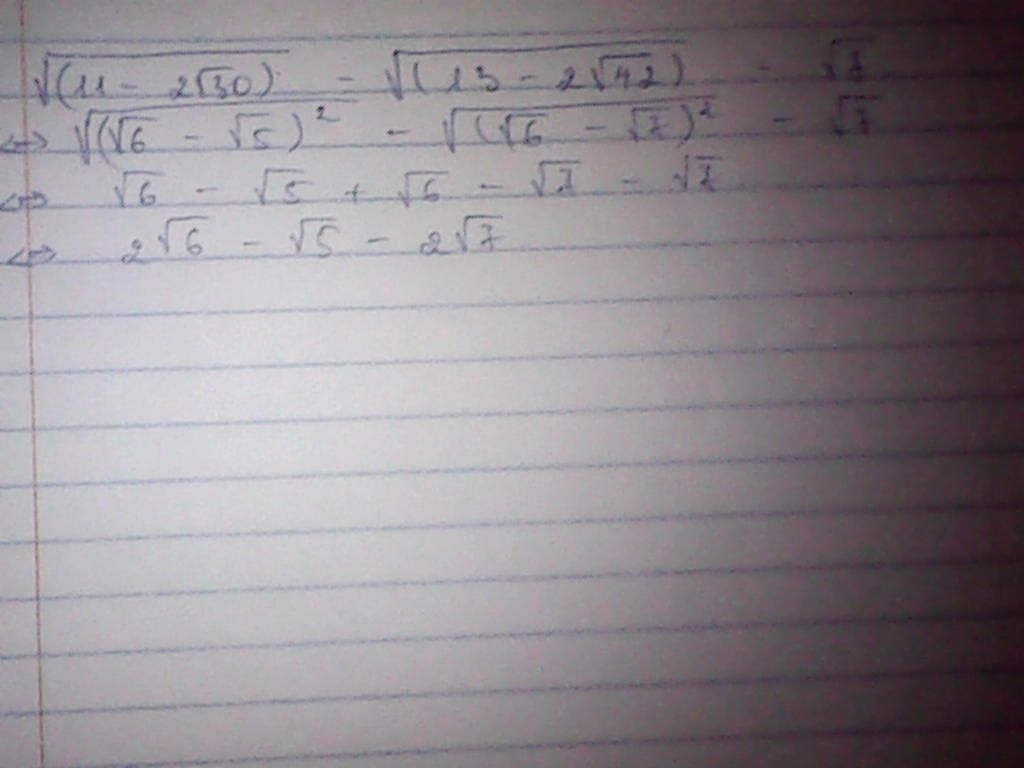 √(11 - 2√30) - √(13 - 2√42) - √7
<=> √(√6 - √5)² - √(√6 - √7)² - √7
<=> √6 - √5 + √6 - √7 - √7
<=> 2√6 - √5 - 2√7